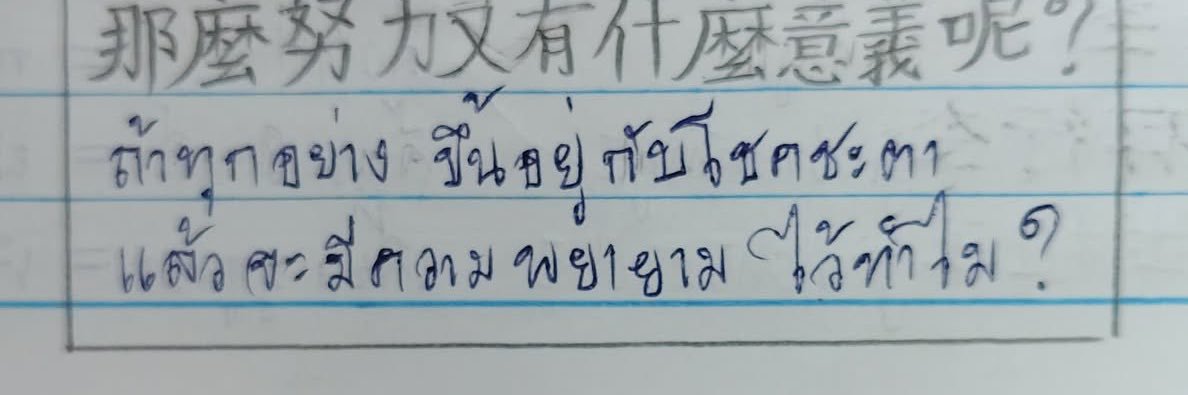 那麼努力又有什麼意義呢?
ถ้าทุกอย่าง ขึ้นอยู่กับโชคชะตา
แล้วจะมีความพยายามไว้ทำไม?